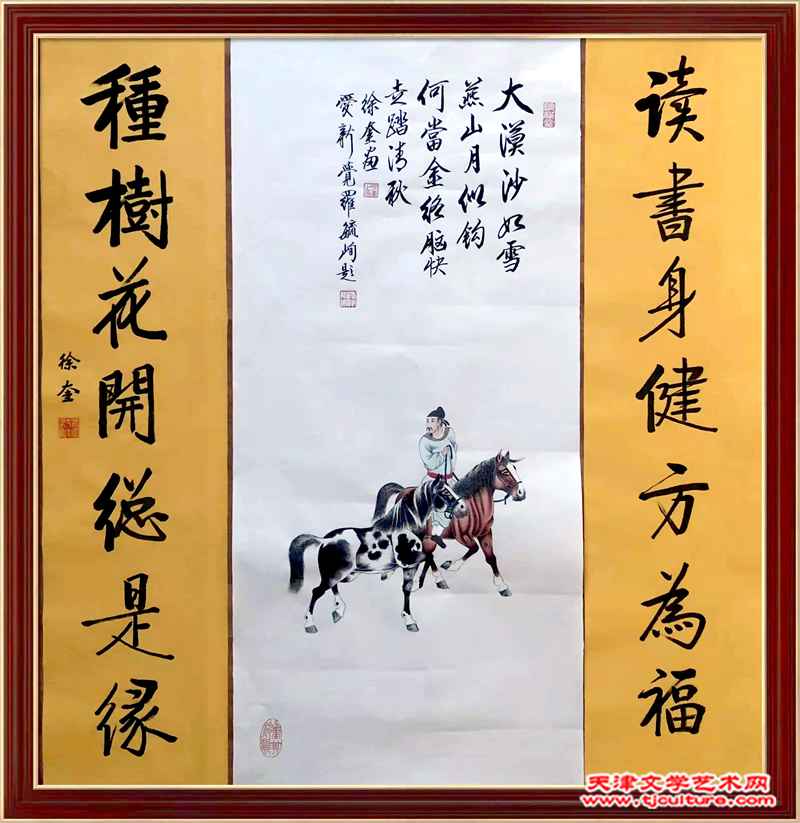 读书身健方为福
大漠沙如雪
燕山月似钩
何當金络脑快
走踏清秋
徐奎画
愛新覺羅毓峋題
種樹花開總是缘
徐奎
天津文学艺术网
www.tjculture.com